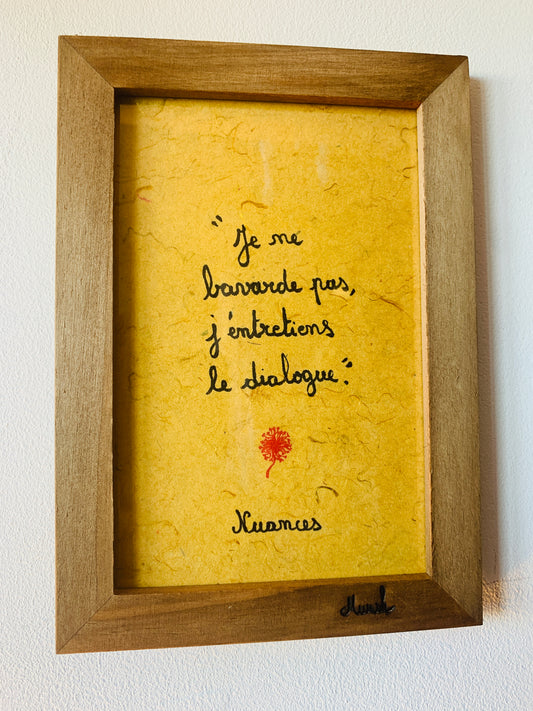 "Je ne
bavarde pas,
j'entretiens
le dialogue."
Nuances